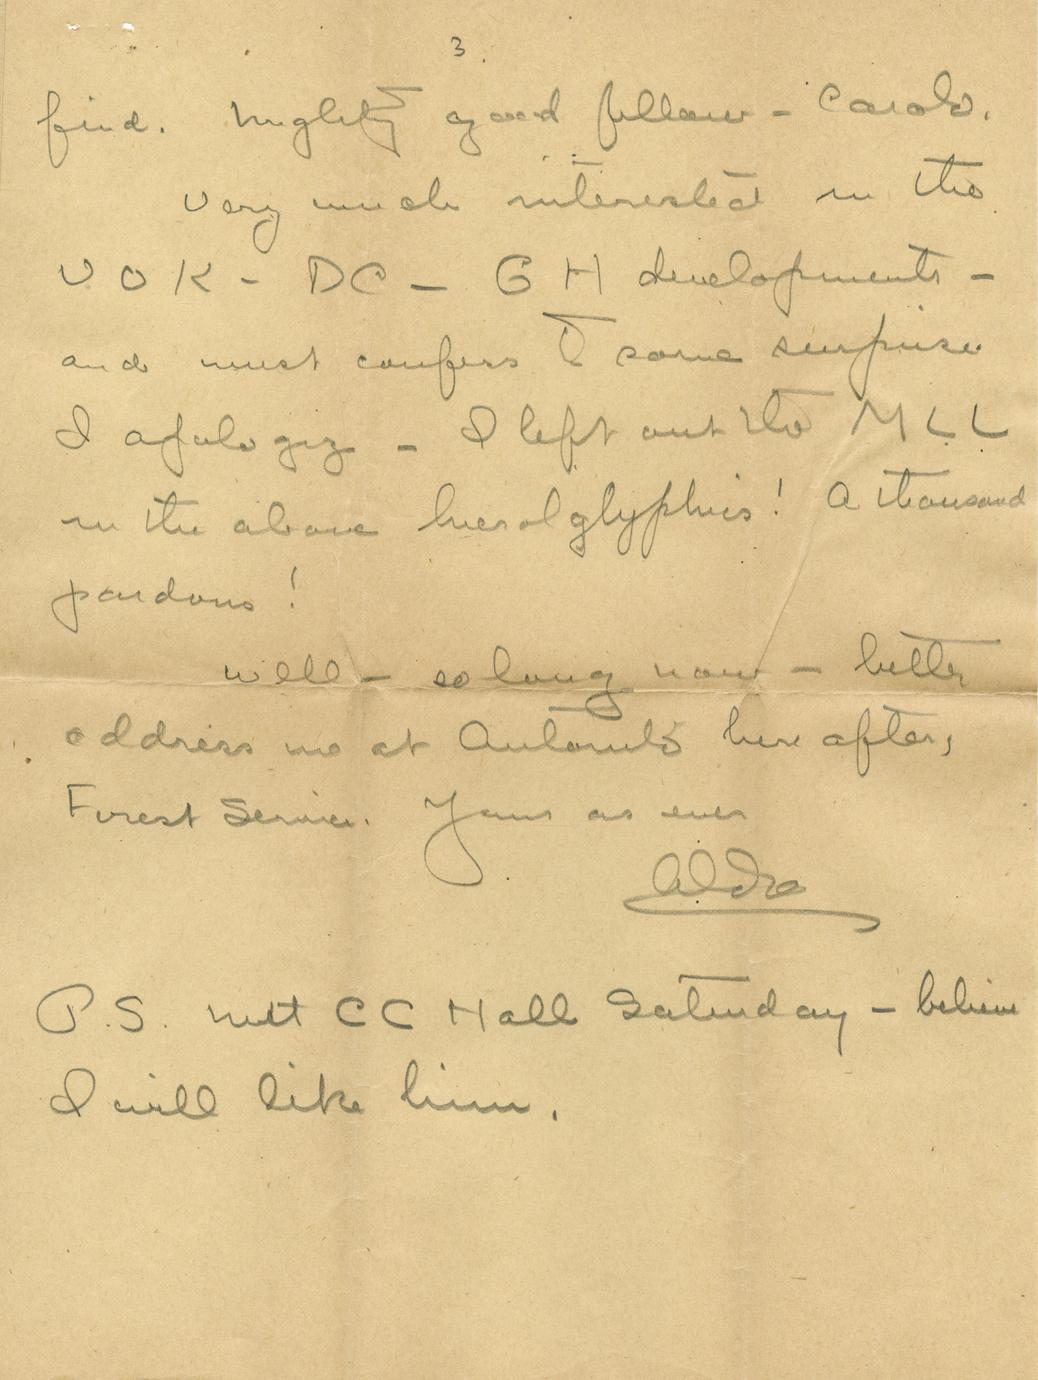 3.
find. Mighty good fellow - Carol.
Very much interested in the
V O K - D C - G H developments -
and must confess to some surprise
I apologize - I left out the M L L
in the above hierolglyphics! A thousand
pardons!
Well - so long now - better
address me at Antonito hereafter,
Forest Service. Yours as ever
Aldo
P.S. Met C C Hall Saturday - believe
I will like him.